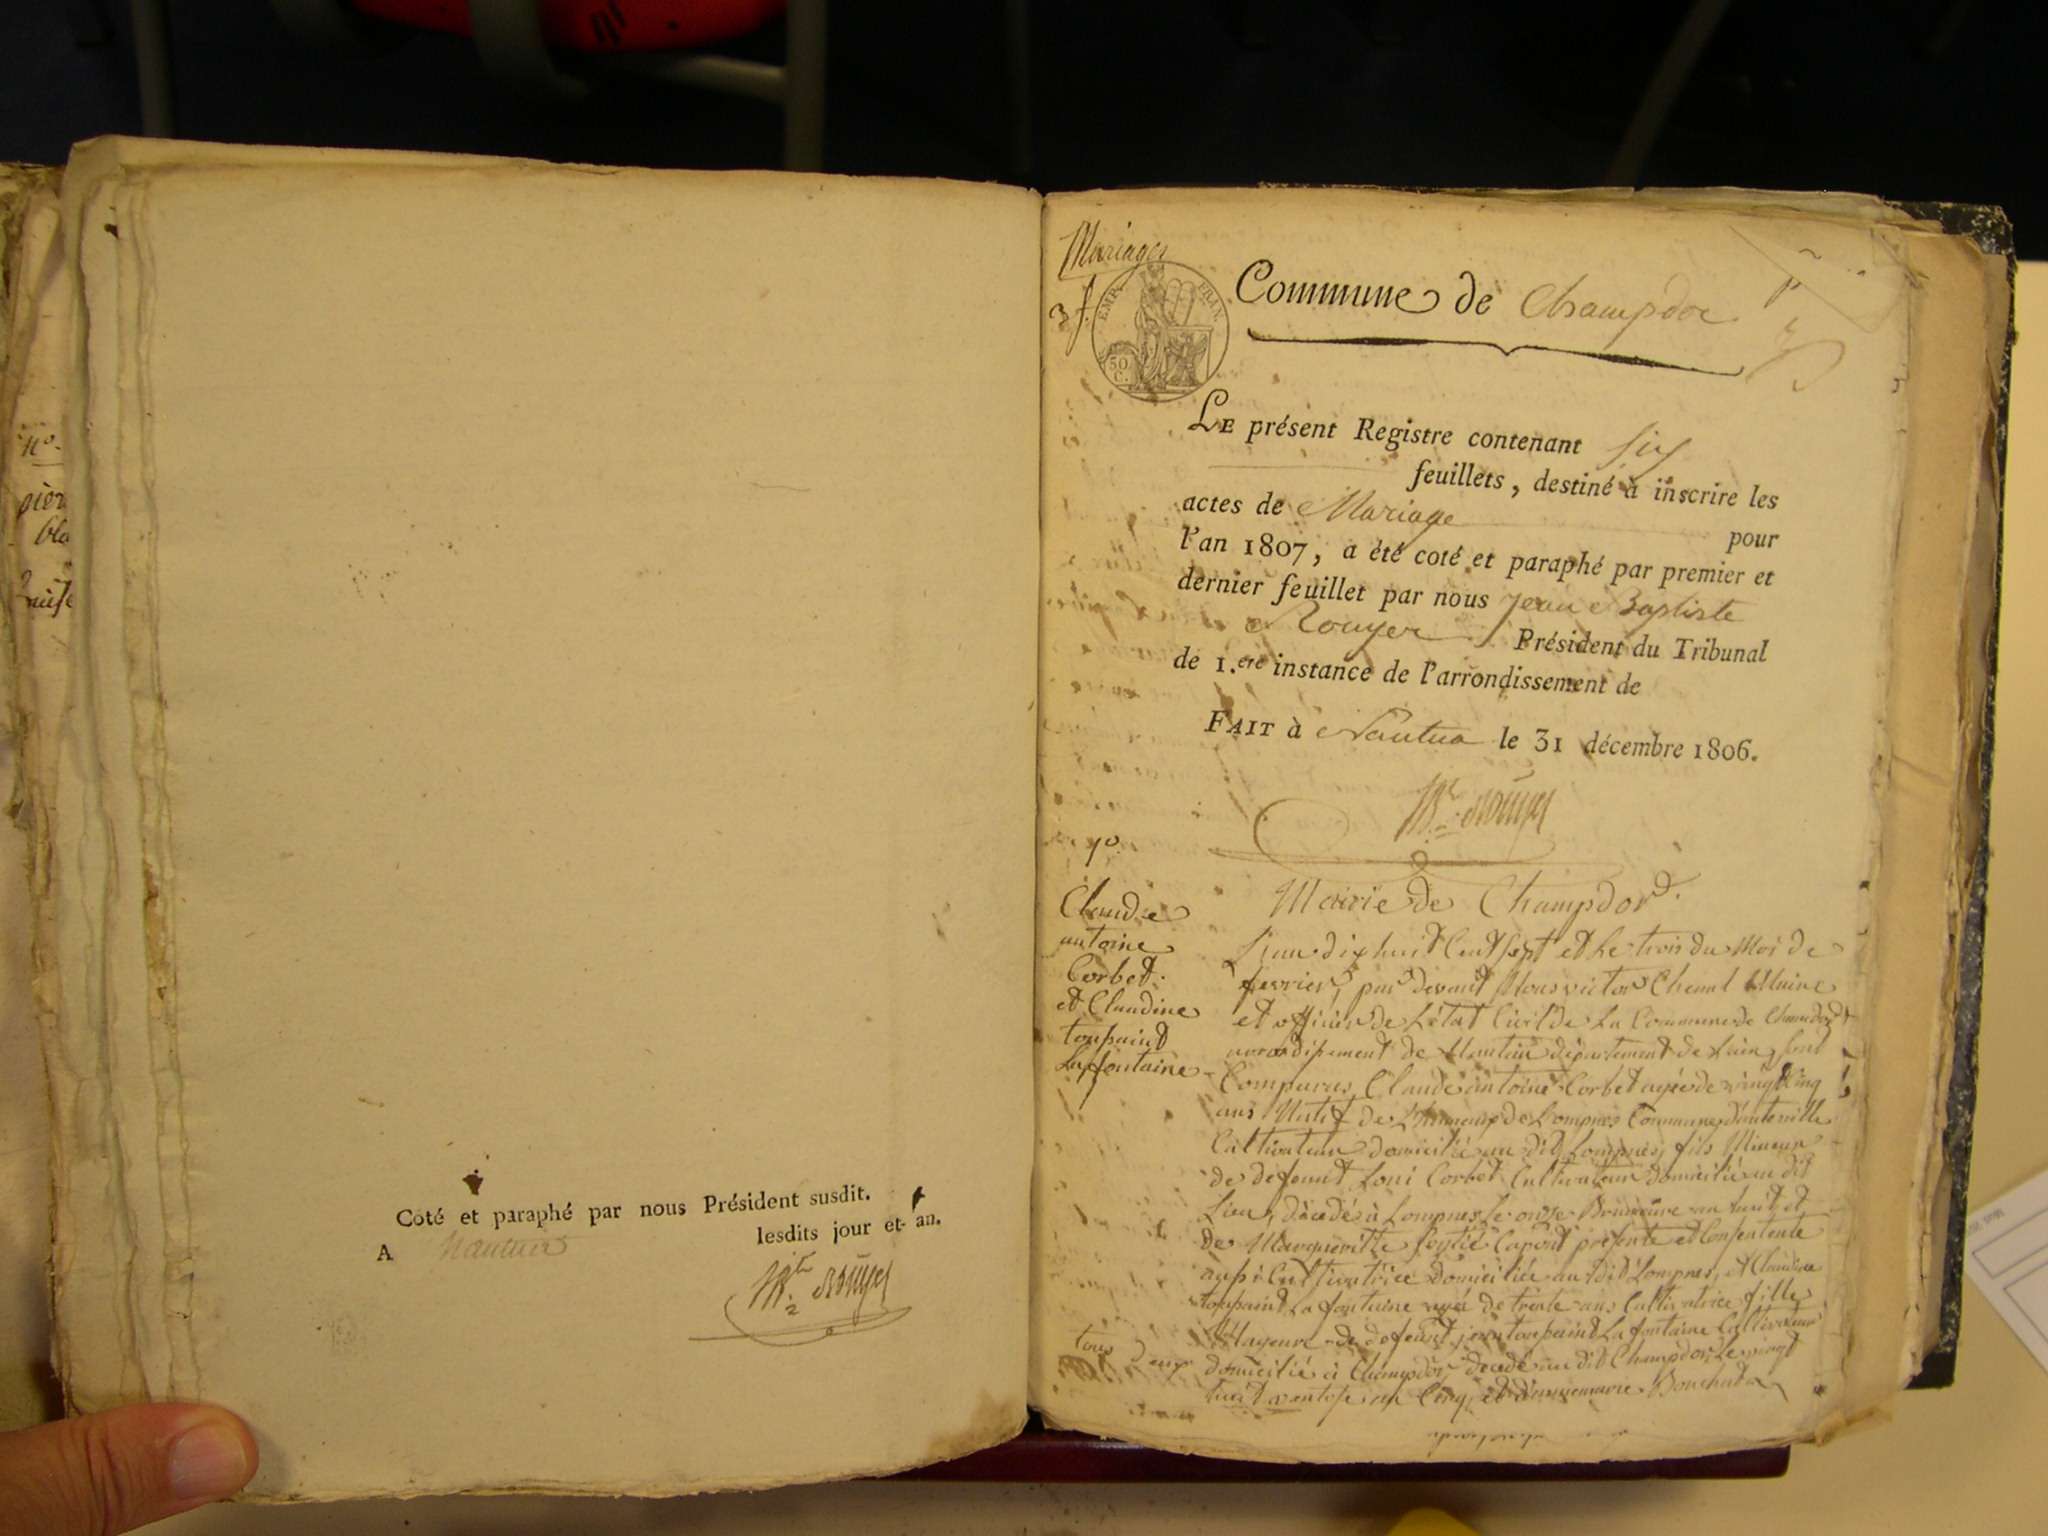 No.
Coté et paraphé par nous Président susdit.
A Nantua lesdits jour et an.
Bte Rouyer
Mariages
3 f.
EMP. FRAN.
50 C.
Commune de Champdor
LE présent Registre contenant six
feuillets, destiné à inscrire les
actes de Mariage pour
l'an 1807, a été coté et paraphé par premier et
dernier feuillet par nous Jean Baptiste
Rouyer Président du Tribunal
de 1.ere instance de l'arrondissement de
FAIT à Nantua le 31 décembre 1806.
Bte Rouyer
1o.
Claude
antoine
Corbet
et Claudine
toupaint
Lafontaine
Mairie de Champdord.
L'an dix huit Cent sept et Le trois du Moi de
fevrier, par devant Nous victor Chenal Maire
et officier de L'état Civil de La Commune de Champdord
arrondisement de Nantua département de Lain, sont
Comparus, Claude antoine Corbet agée de vingt Cinq
ans Natif de de Lompnes Commune d'auteville
Cultivateur domicilié au dit Lompnes, fils Mineur
de defeunt Loui Corbet Cultivateur domicilié au dit
Lieu, décédé à Lompnes Le onze Brumaire an huit et
de Margueritte Capont presente et Consentente
aussi Cultivatrice domiciliée au dit Lompnes, et Claudine
toupaint La fontaine agée de trente ans Cultivatrice fille
Mageure de defeunt jean toupaint La fontaine Cultivateur
domicilié à Champdor, decedé au dit Champdor, Le vingt
huit vantose an Cinq, et d'annemarie Bouchuta
tous Deux